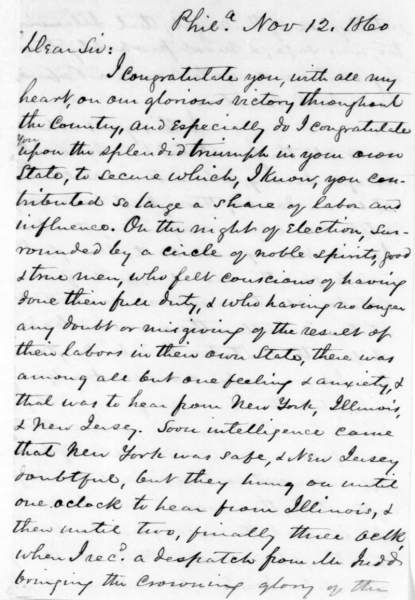 Phil.ª Nov 12. 1860
Dear Sir:
I congratulate you, with all my
heart, on our glorious victory throughout
the Country, and Especially do I congratulate
you
upon the splendid triumph in your own
State, to secure which, I know, you con-
tributed so large a share of labor and
influence. On the night of Election, sur-
rounded by a circle of noble spirits, good
& true men, who felt conscious of having
done their full duty, & who having no longer
any doubt or misgiving of the result of
their labors in their own State, there was
among all but one feeling & anxiety, &
that was to hear from New York, Illinois,
& New Jersey. Soon intelligence came
that New York was safe, & New Jersey
doubtful, but they hung on until
one oclock to hear from Illinois, &
then until two, finally three oclk
when I rec.d a despatch from Mr Judd
bringing the crowning glory of the